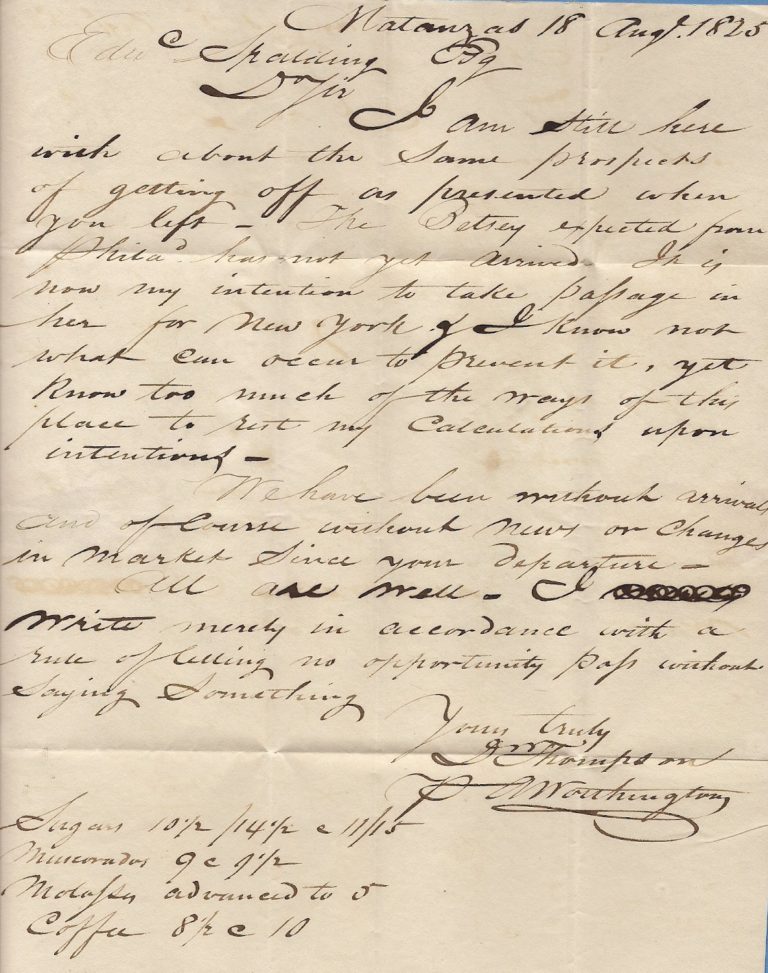 Matanzas 18 Augt. 1825
Edwd Spalding Esq
Dr Sir
I am still here
with about the same prospects
of getting off as presented when
you left – The Betsey expected from
Philad. has not yet arrived. It is
now my intention to take passage in
her for New York & I know not
what can occur to prevent it, yet
know too much of the ways of this
place to rest my Calculations upon
intentions –
We have been without arrivals
and of Course without news or Changes
in Market Since your departure –
All are well – I
write merely in accordance with a
rule of letting no opportunity pass without
saying Something
Yours truly
Thompson
P A Worthington
Sugars 10 1/2 / 14 1/2 c 11/15
Muscovados 9 c 9 1/2
Molasses advanced to 5
Coffee 8 1/2 c 10